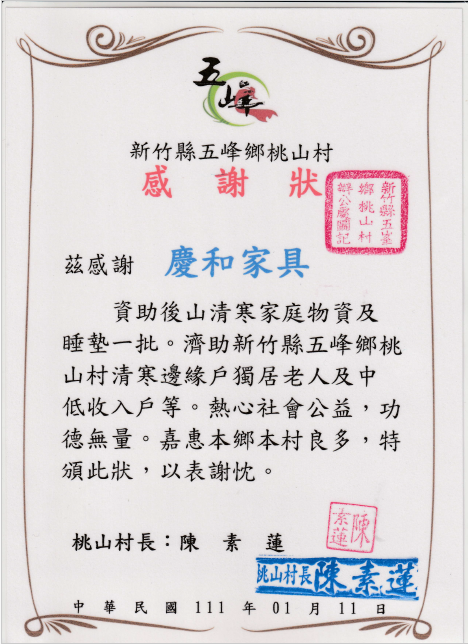 五峰
新竹縣五峰鄉桃山村
感謝狀
新竹縣五峯
鄉桃山村
辦公處圖記
茲感謝 慶和家具
資助後山清寒家庭物資及
睡墊一批。濟助新竹縣五峰鄉桃
山村清寒邊緣戶獨居老人及中
低收入戶等。熱心社會公益，功
德無量。嘉惠本鄉本村良多，特
頒此狀，以表謝忱。
陳素蓮
桃山村長：陳素蓮
桃山村長陳素蓮
中華民國 111 年 01 月 11 日